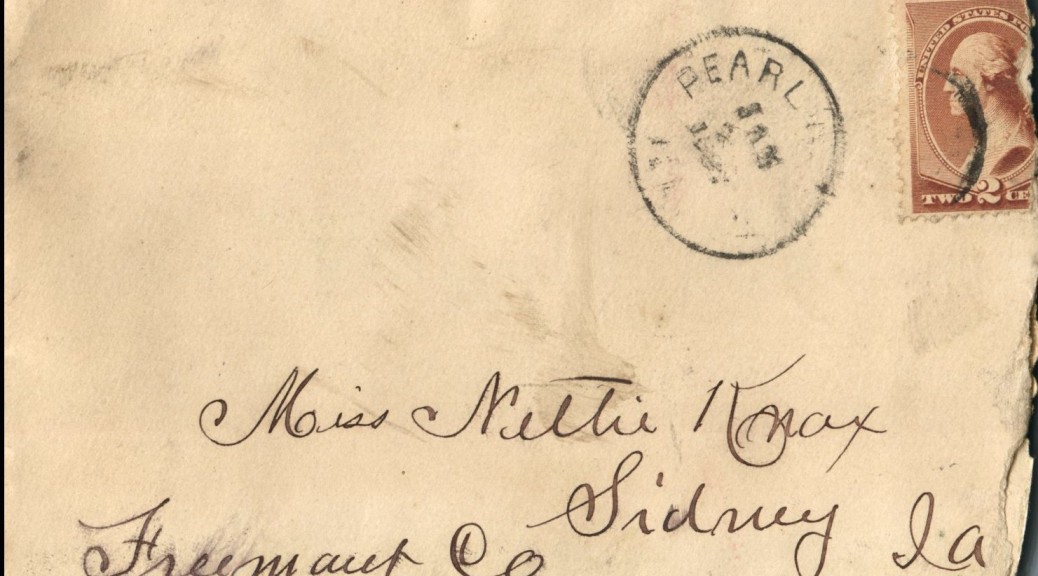 PEARL
JAN
UNITED STATES PO
TWO 2 CE
Miss Nettie Knox
Sidney Ia
Freemont Co